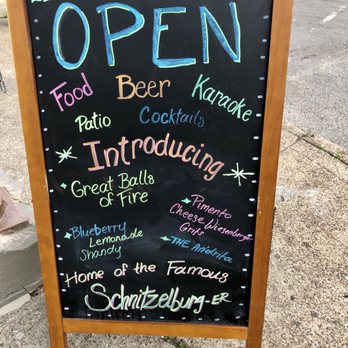 OPEN
Food Beer Karaoke
Patio Cocktails
Introducing
Great Balls
of Fire
Pimento
Cheese Weisenberger
Grits
Blueberry
Lemonade
Shandy
THE
Home of the Famous
Schnitzelburg-ER